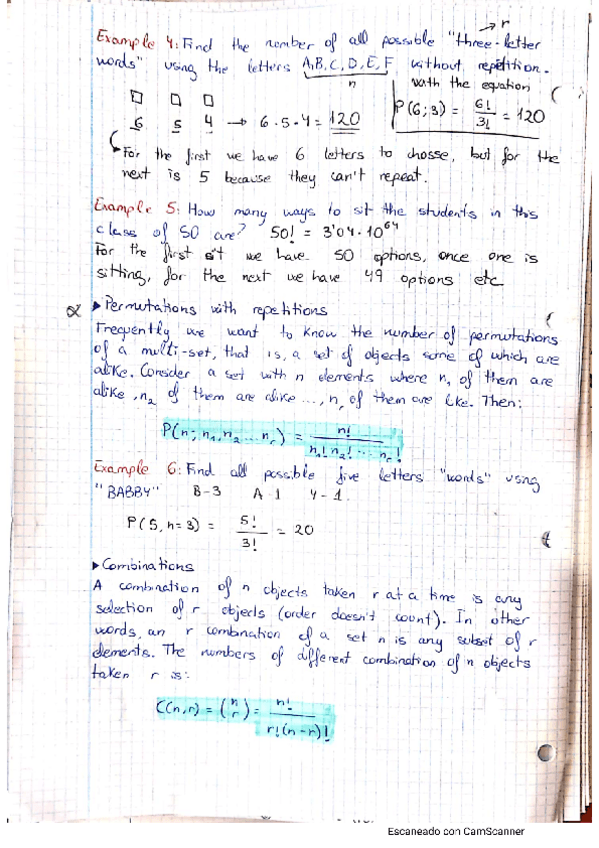 → r
Example 4: Find the nomber of all possible "three-letter
words" using the letters A,B,C,D,E,F without repetition.
n
with the equation
□ □ □
6 5 4 → 6·5·4 = 120
P(6;3) = 6!/3! = 120
For the first we have 6 letters to chosse, but for the
next is 5 because they can't repeat.
Example 5: How many ways to sit the students in this
class of 50 are? 50! = 3'04·10^64
For the first sit we have 50 options, once one is
sitting, for the next we have 49 options etc
▸ Permutations with repetitions
Frequently we want to know the number of permutations
of a multi-set, that is, a set of objects some of which are
alike. Consider a set with n elements where n₁ of them are
alike, n₂ of them are alike ..., nᵣ of them are like. Then:
P(n; n₁, n₂ ... nᵣ) = n!/(n₁! n₂! ... nᵣ!)
Example 6: Find all possible five letters "words" using
"BABBY" B-3 A-1 Y-1
P(5, n=3) = 5!/3! = 20
▸ Combinations
A combination of n objects taken r at a time is any
selection of r objects (order doesn't count). In other
words, an r combination of a set n is any subset of r
elements. The numbers of different combination of n objects
taken r is:
C(n,r) = (n r) = n!/(r!(n-r)!)
Escaneado con CamScanner